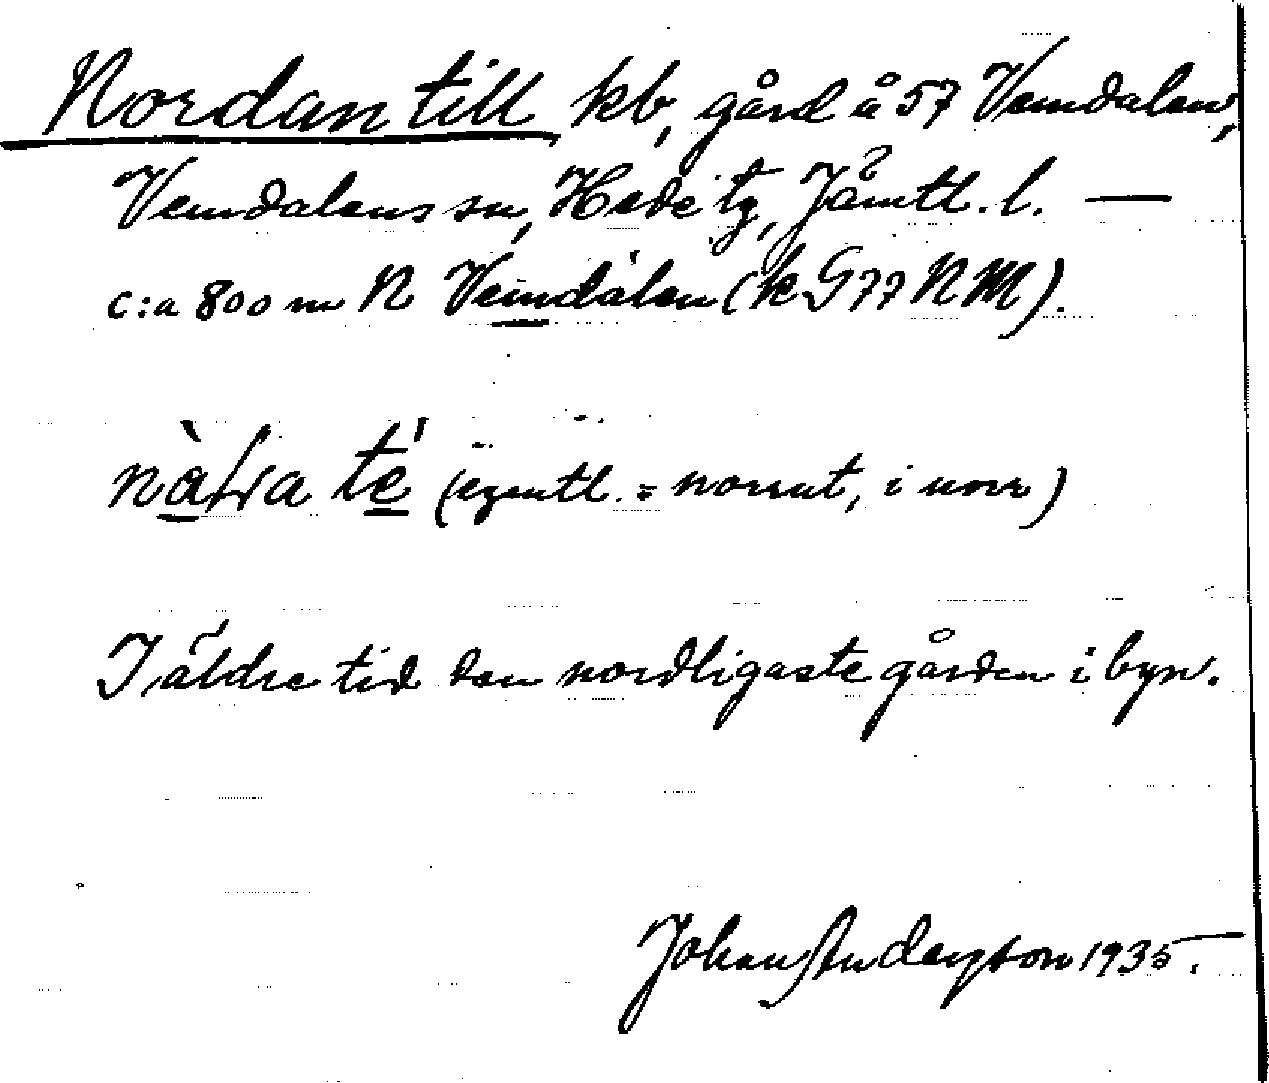 Nordan till kb, gård å 57 Vemdalen,
Vemdalens sn, Hede tg, Jämtl. l. —
c:a 800 m N Vemdalen (k G 77 N M).
té (egentl. = norrut, i norr)
I äldre tid den nordligaste gården i byn.
Johan Anderzton 1935.